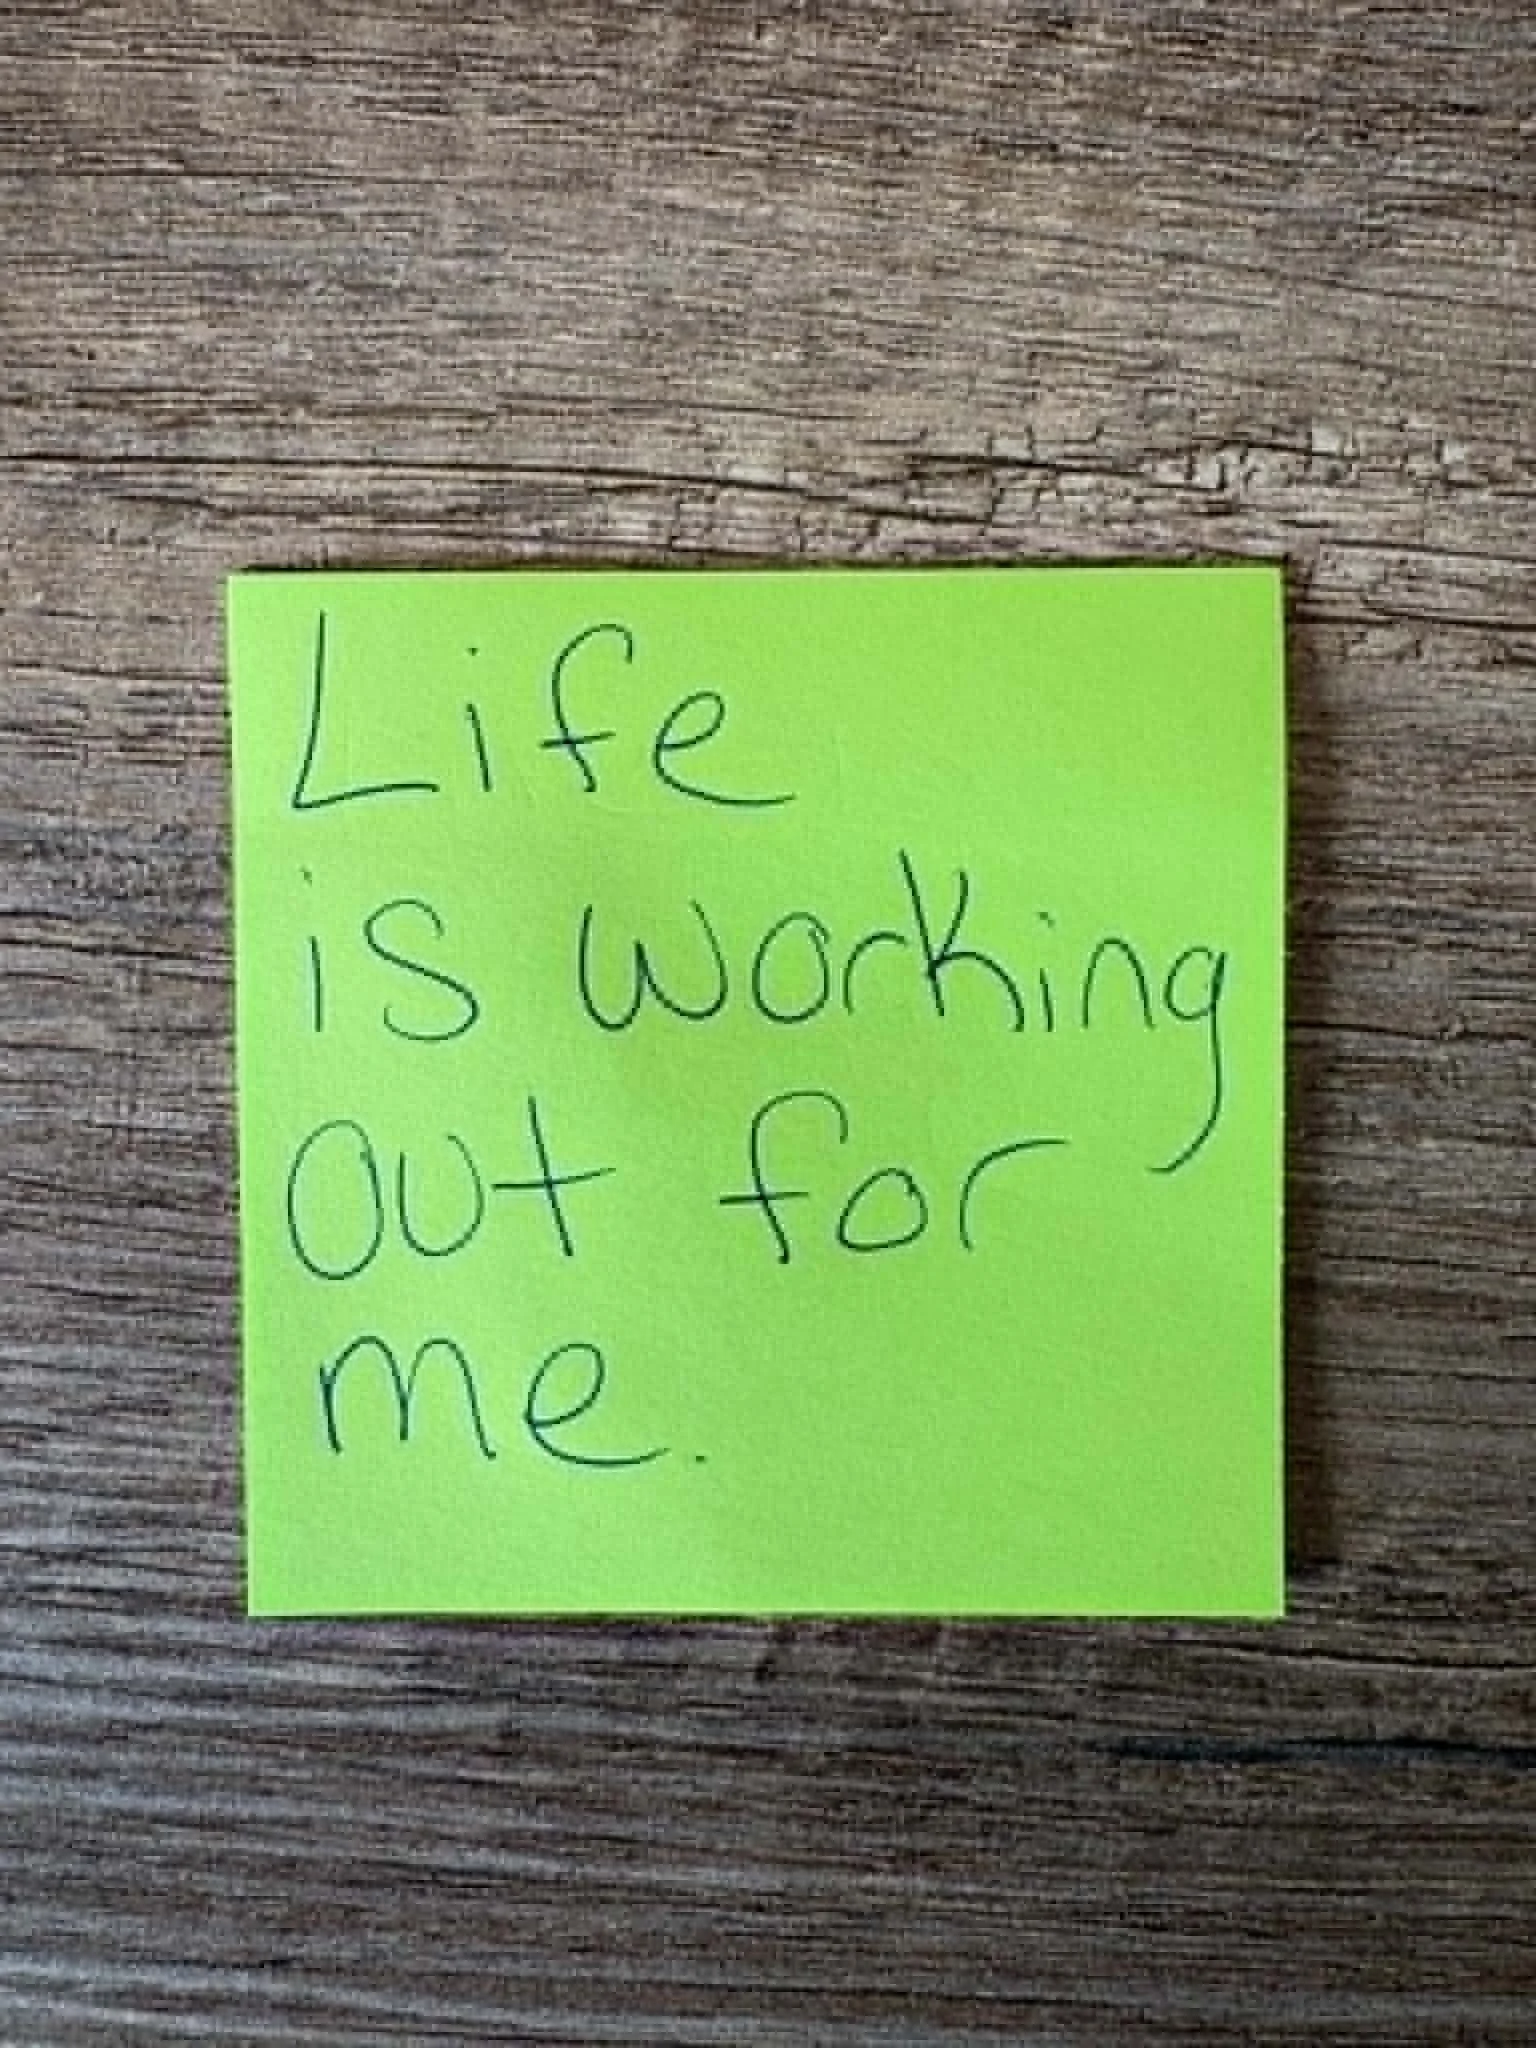 Life
is working
out for
me.